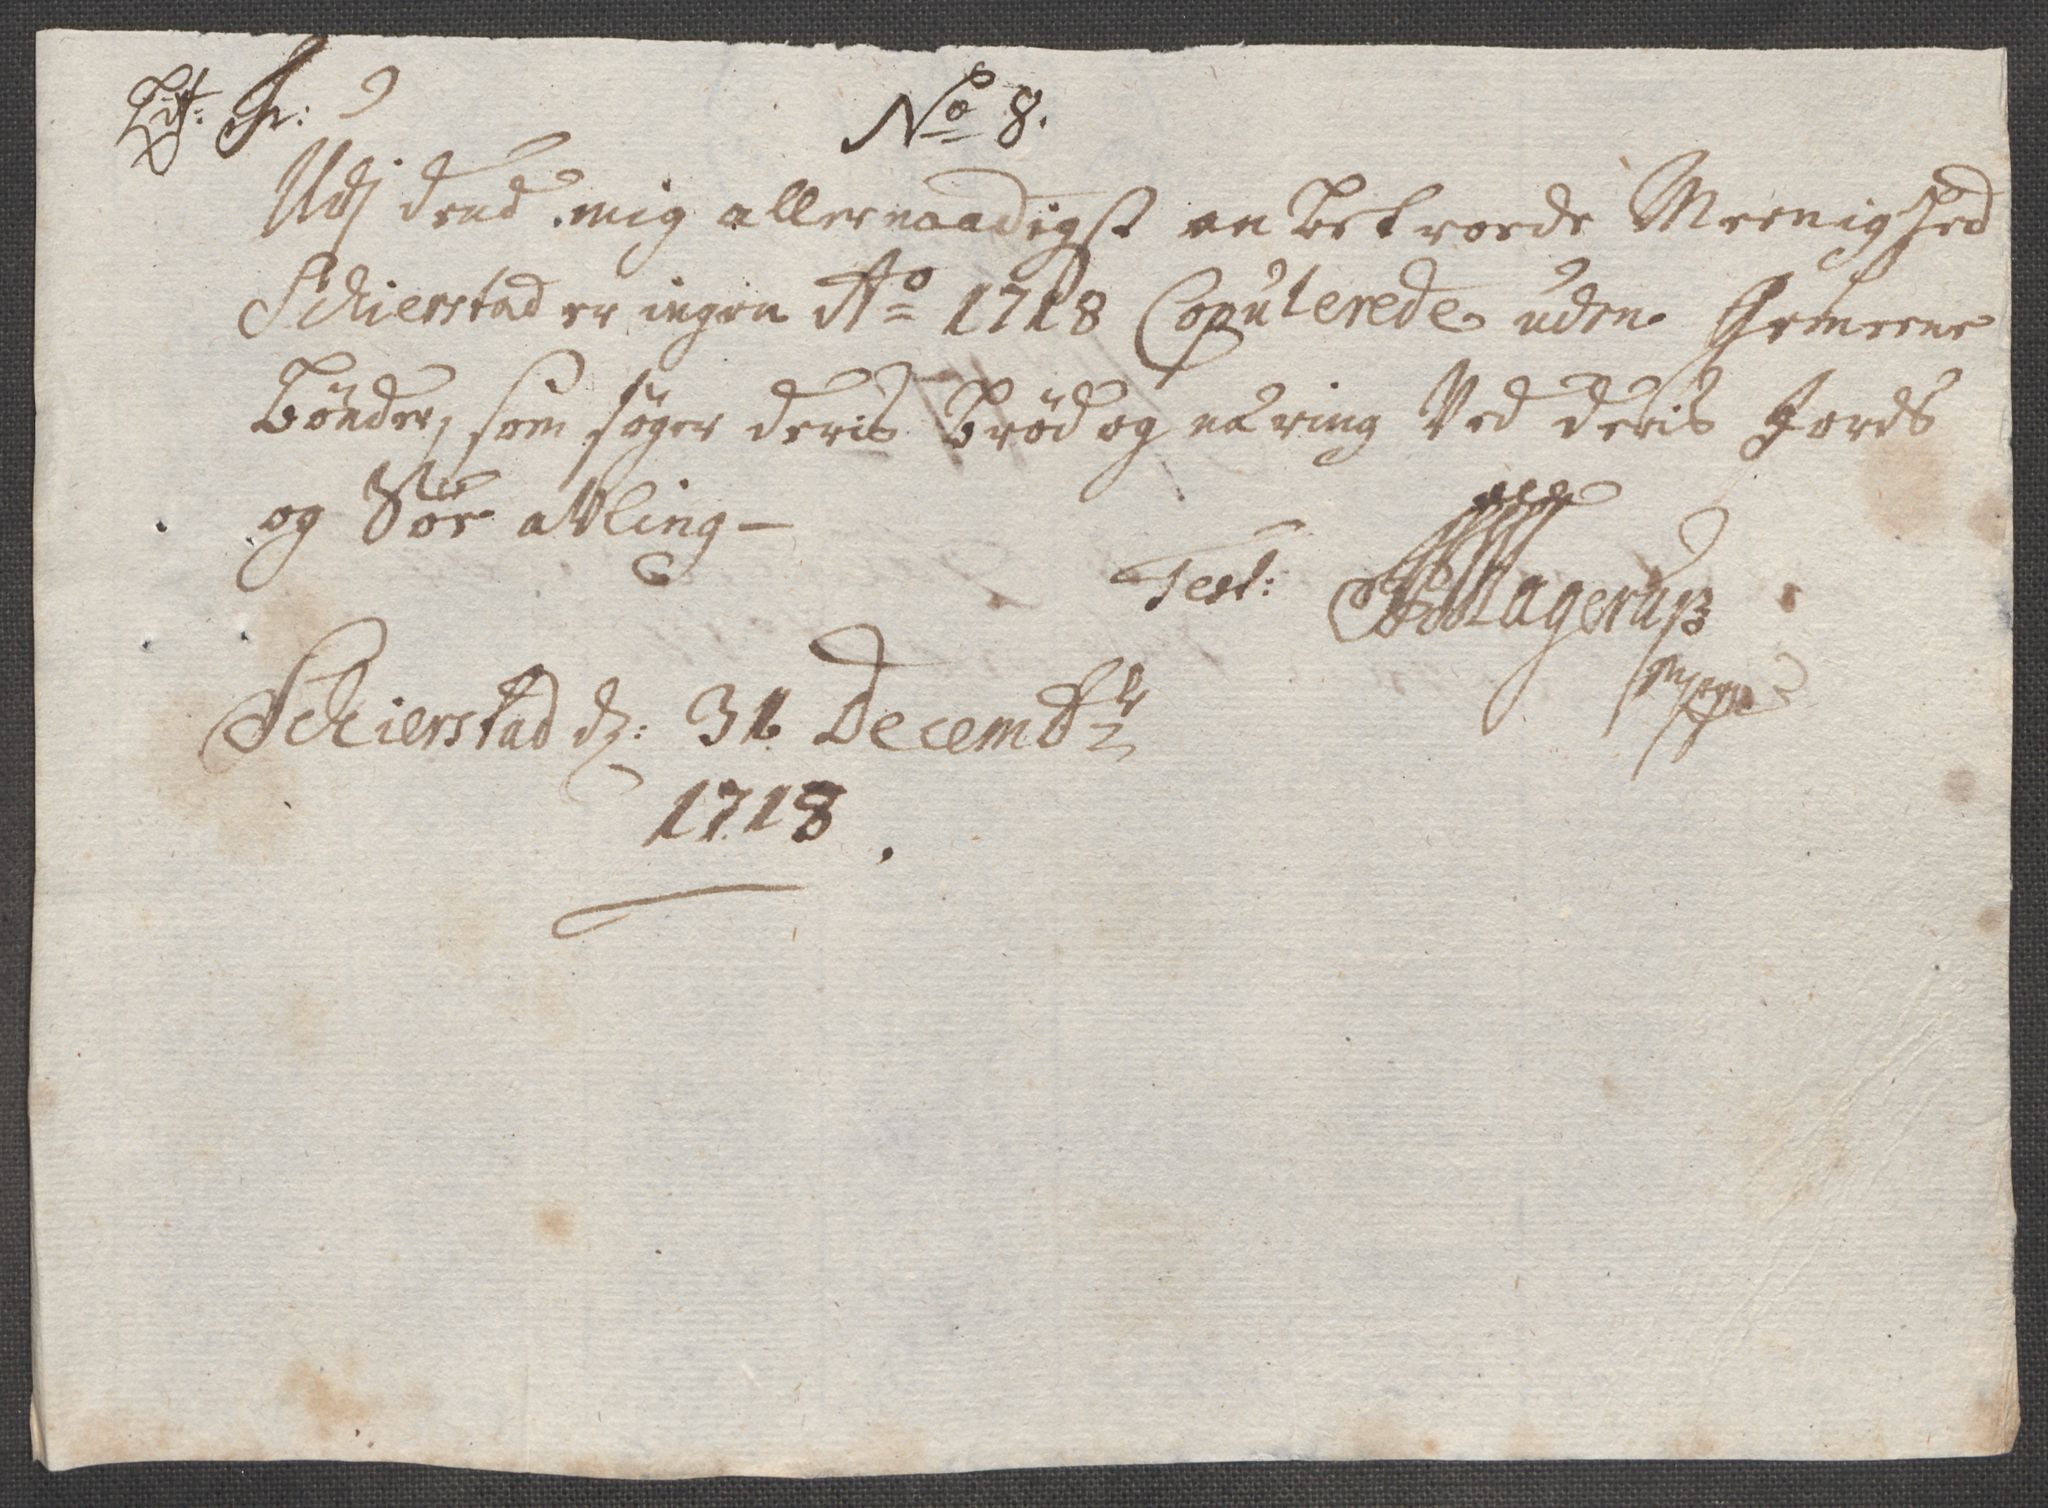 Lit: G:
No 8.
Udj dend mig allernaadigst anbetroede Meenighed
Schierstad er ingen Ao 1718 Copulerede uden Gemeene
Bønder, som søger deris Brød og næring Ved deris Jords
og Søe avling -
Test: Hagerup
mppa
Schierstad dz: 31 Decembr
1718.